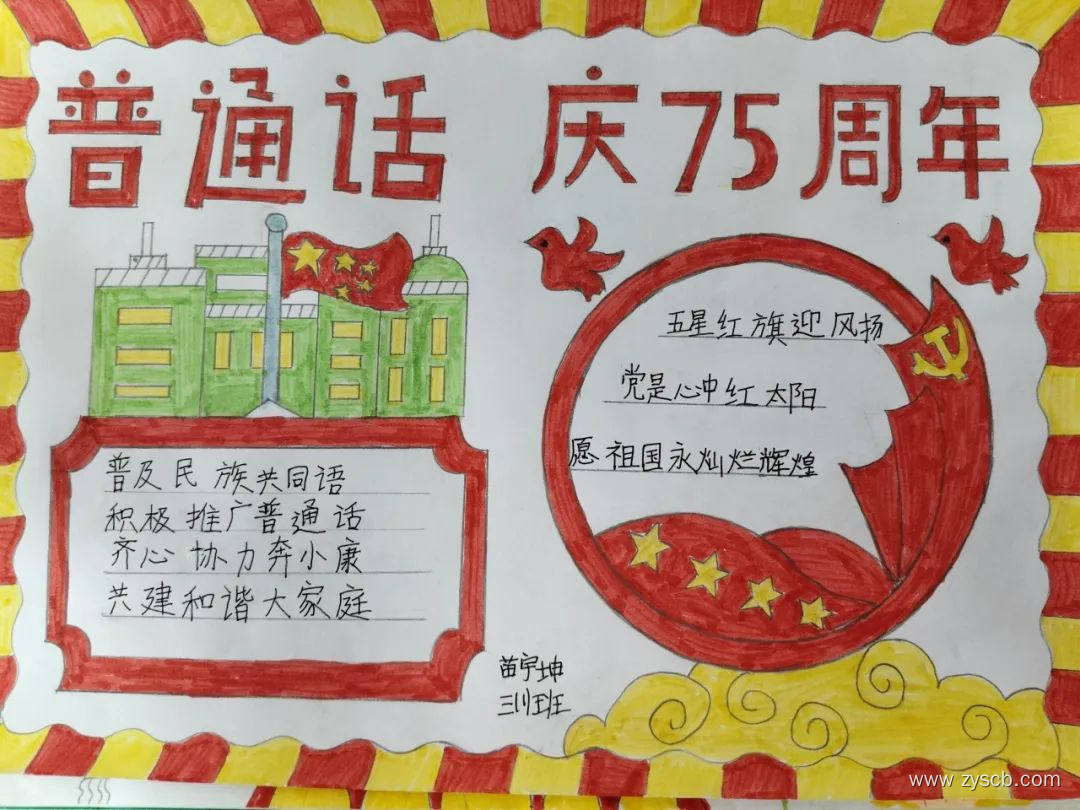 普通话 庆75周年
五星红旗迎风扬
党是心中红太阳
愿祖国永灿烂辉煌
普及民族共同语
积极推广普通话
齐心协力奔小康
共建和谐大家庭
苗宇坤
三(1)班
www.zyscb.com